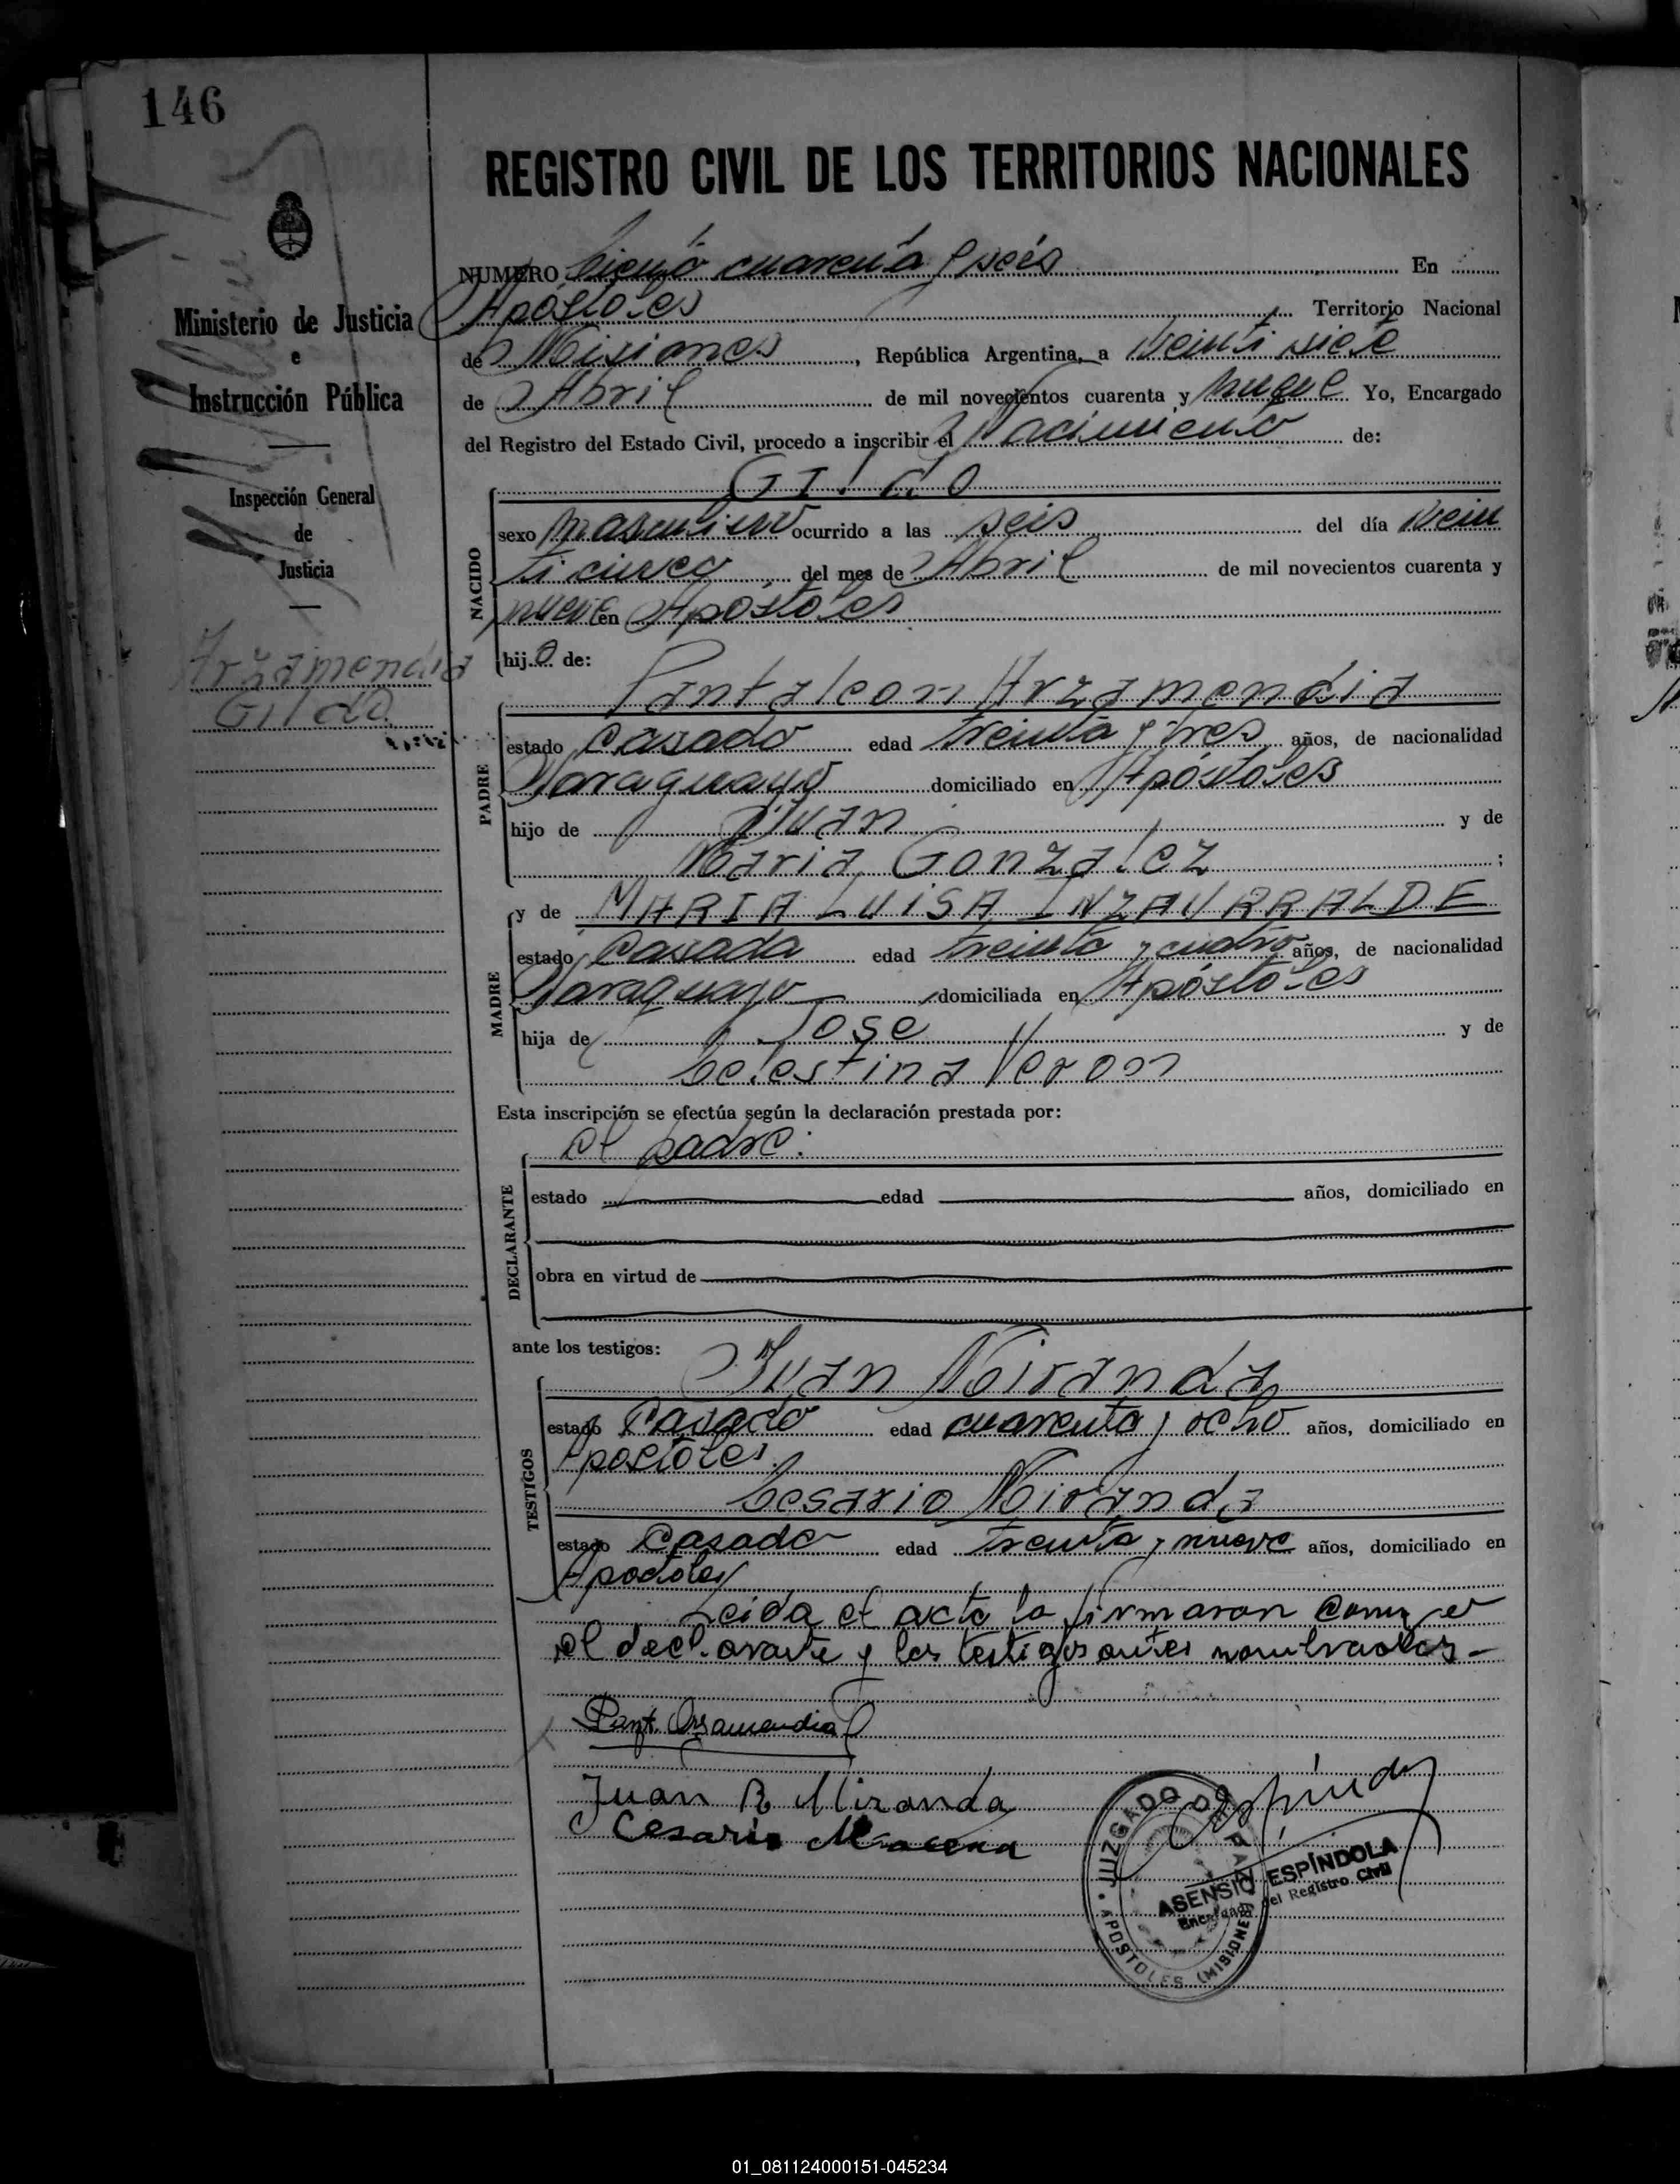 146
REGISTRO CIVIL DE LOS TERRITORIOS NACIONALES
NUMERO Ciento cuarenta y seis En
Apóstoles Territorio Nacional
de Misiones, República Argentina, a Veinti siete
de Abril de mil novecientos cuarenta y nueve Yo, Encargado
del Registro del Estado Civil, procedo a inscribir el Nacimiento de:
Gildo
Ministerio de Justicia
e
Instrucción Pública
Inspección General
de
Justicia
Arzamendia
Gildo
NACIDO
sexo masculino ocurrido a las seis del día Vein
ticinco del mes de Abril de mil novecientos cuarenta y
nueve en Apóstoles
hijo de:
PADRE
Pantaleon Arzamendia
estado Casado edad treinta y tres años, de nacionalidad
Paraguayo domiciliado en Apóstoles
hijo de Juan y de
Maria Gonzalez;
MADRE
y de MARIA LUISA INZAURRALDE
estado Casada edad treinta y cuatro años, de nacionalidad
Paraguayo domiciliada en Apóstoles
hija de Jose y de
Celestina Veron
Esta inscripción se efectúa según la declaración prestada por:
el padre:
DECLARANTE
estado edad años, domiciliado en
obra en virtud de
ante los testigos:
TESTIGOS
Juan Miranda
estado Casado edad cuarenta y ocho años, domiciliado en
Apostoles.
Cesario Miranda
estado Casado edad treinta y nueve años, domiciliado en
Apostoles
Leida el acta la firmaron
el declarante y los testigos antes nombrados-
Pant. Arzamendia
Juan R Miranda
Cesario
Espíndola
JUZGADO DE PAZ
APOSTOLES (MISIONES)
ASENSIO ESPÍNDOLA
Encargado del Registro Civil
01_081124000151-045234